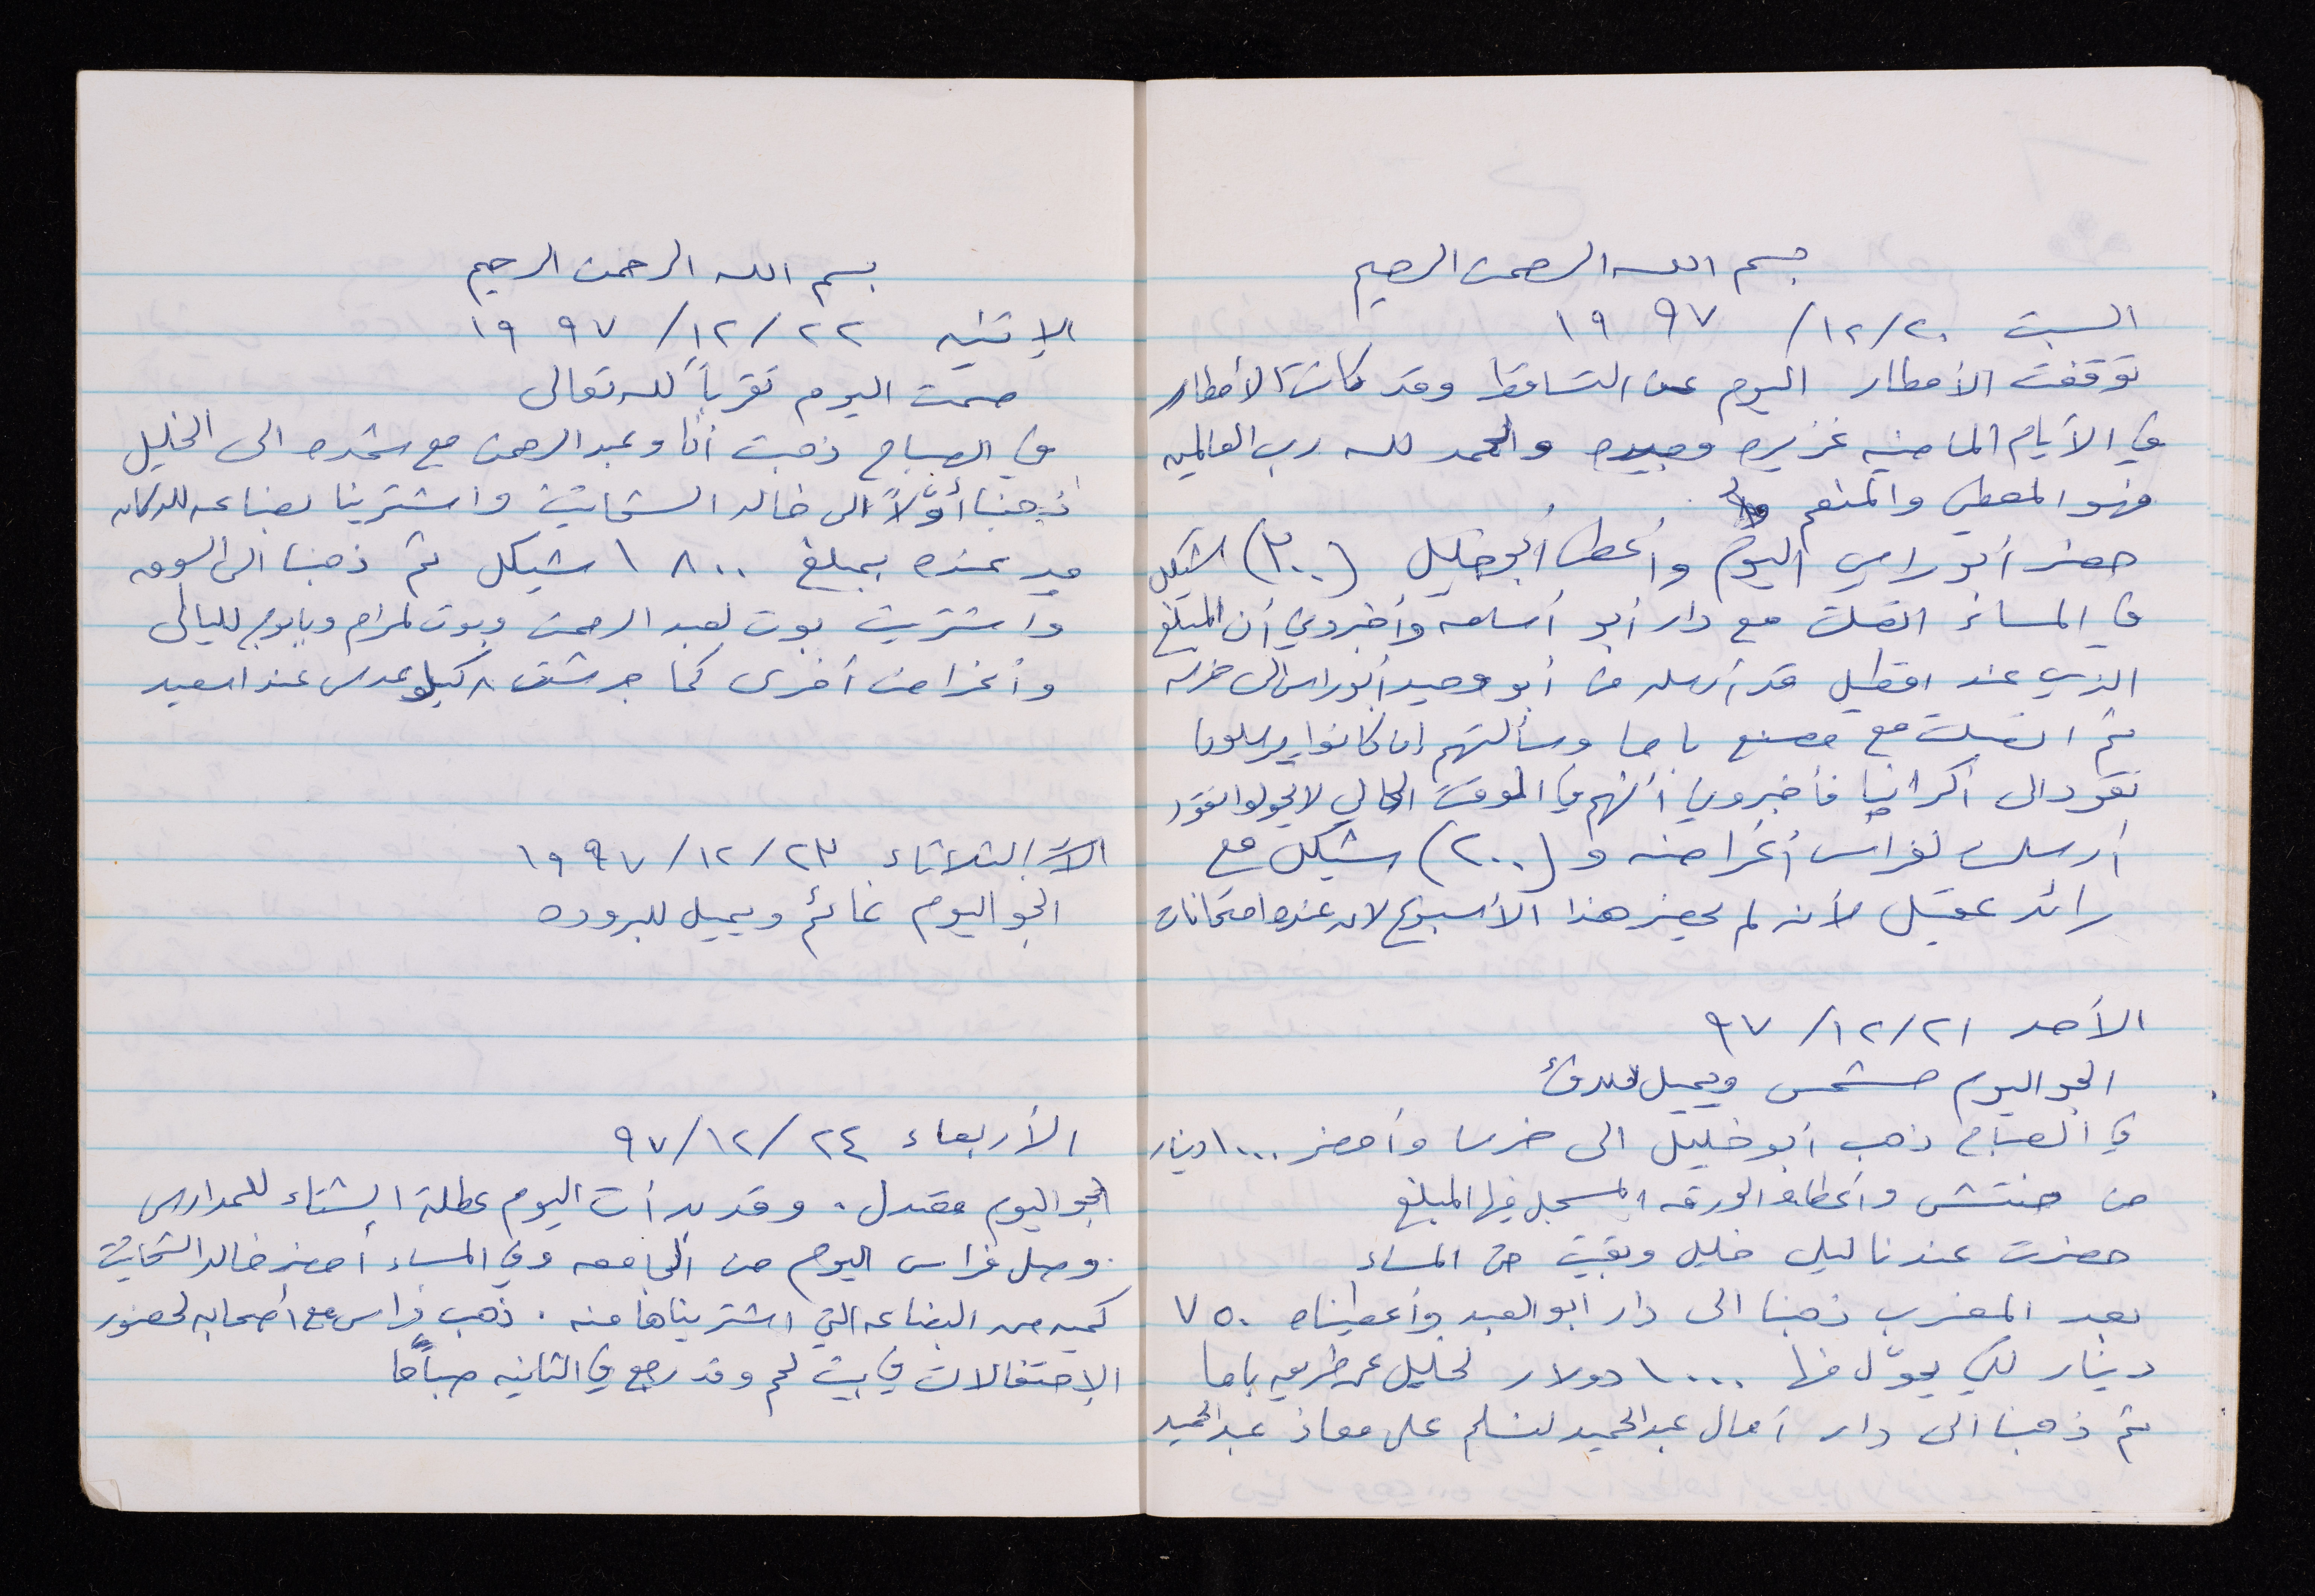 بسم الله الرحمن الرحيم
السبت ٢٠/١٢/ ١٩٩٧
توقفت الأمطار اليوم عن التساقط وقد كانت الأمطار
في الأيام الماضيه غزيره وجيده والحمد لله رب العالمين
فهو المعطي والمنعم
حضر أبو راسي اليوم وأعطى أبو خليل (٣٠٠) شيكل
في المساء اتصلت مع دار أبو أسامه وأخبروني أن المبلغ
الذي عند قد أرسله أبو وحيد
ثم اتصلت مع مصنع باما وسألتهم إن كانوا يرسلون
نقود الى أكرانيا فأخبروني أنهم في الوقت الحالي لا يحولوا نقود
أرسلت لفراس أغراضه و (٢٠٠) شيكل مع
رائد عقيل لأنه لم يحضر هذا الأسبوع لان عنده امتحانات
الأحد ٢١/١٢/ ٩٧
الجو اليوم مشمس ويميل للدفئ
في الصباح ذهب أبو خليل الى خرسا وأحضر ١٠٠٠ دينار
من حنتش وأعطاه الورقه المسجل فيها المبلغ
حضرت عندنا ليلى خليل وبقيت حتى المساء
بعد المغرب ذهبنا الى دار أبو العبد وأعطيناه ٧٥٠
دينار لكي يحوّل منها ١٠٠٠ دولار لخليل عن طريق باما
ثم ذهبنا الى دار آمال عبد الحميد لنسلم على معاذ عبد الحميد
بسم الله الرحمن الرحيم
الإثنين ٢٢/١٢/ ١٩٩٧
صمت اليوم تقرباً لله تعالى
في الصباح ذهبت أنا وعبد الرحمن مع شحده الى الخليل
ذهبنا أوّلاً الى خالد الشحاتيت واشترينا بضاعه للدكان
من عنده بمبلغ ١٨٠٠ شيكل ثم ذهبنا الى السوق
واشتريت بوت لعبد الرحمن وبوت لمرام وبابوج لليالي
وأغراض أخرى كما جرشت ٨ كيلو عدس عند اسعيد
الثلاثاء ٢٣/١٢/١٩٩٧
الجو اليوم غائم ويميل للبروده
الأربعاء ٢٤/١٢/٩٧
الجو اليوم معتدل . وقد بدأت اليوم عطلة الشتاء للمدارس
وصل فراس اليوم من الجامعه وفي المساء أحضر خالد الشحاتيت
كميه من البضاعه التي اشتريناها منه . ذهب فراس مع أصحابه لحضور
الإحتفالات في بيت لحم وقد رجع في الثانيه صباحاً